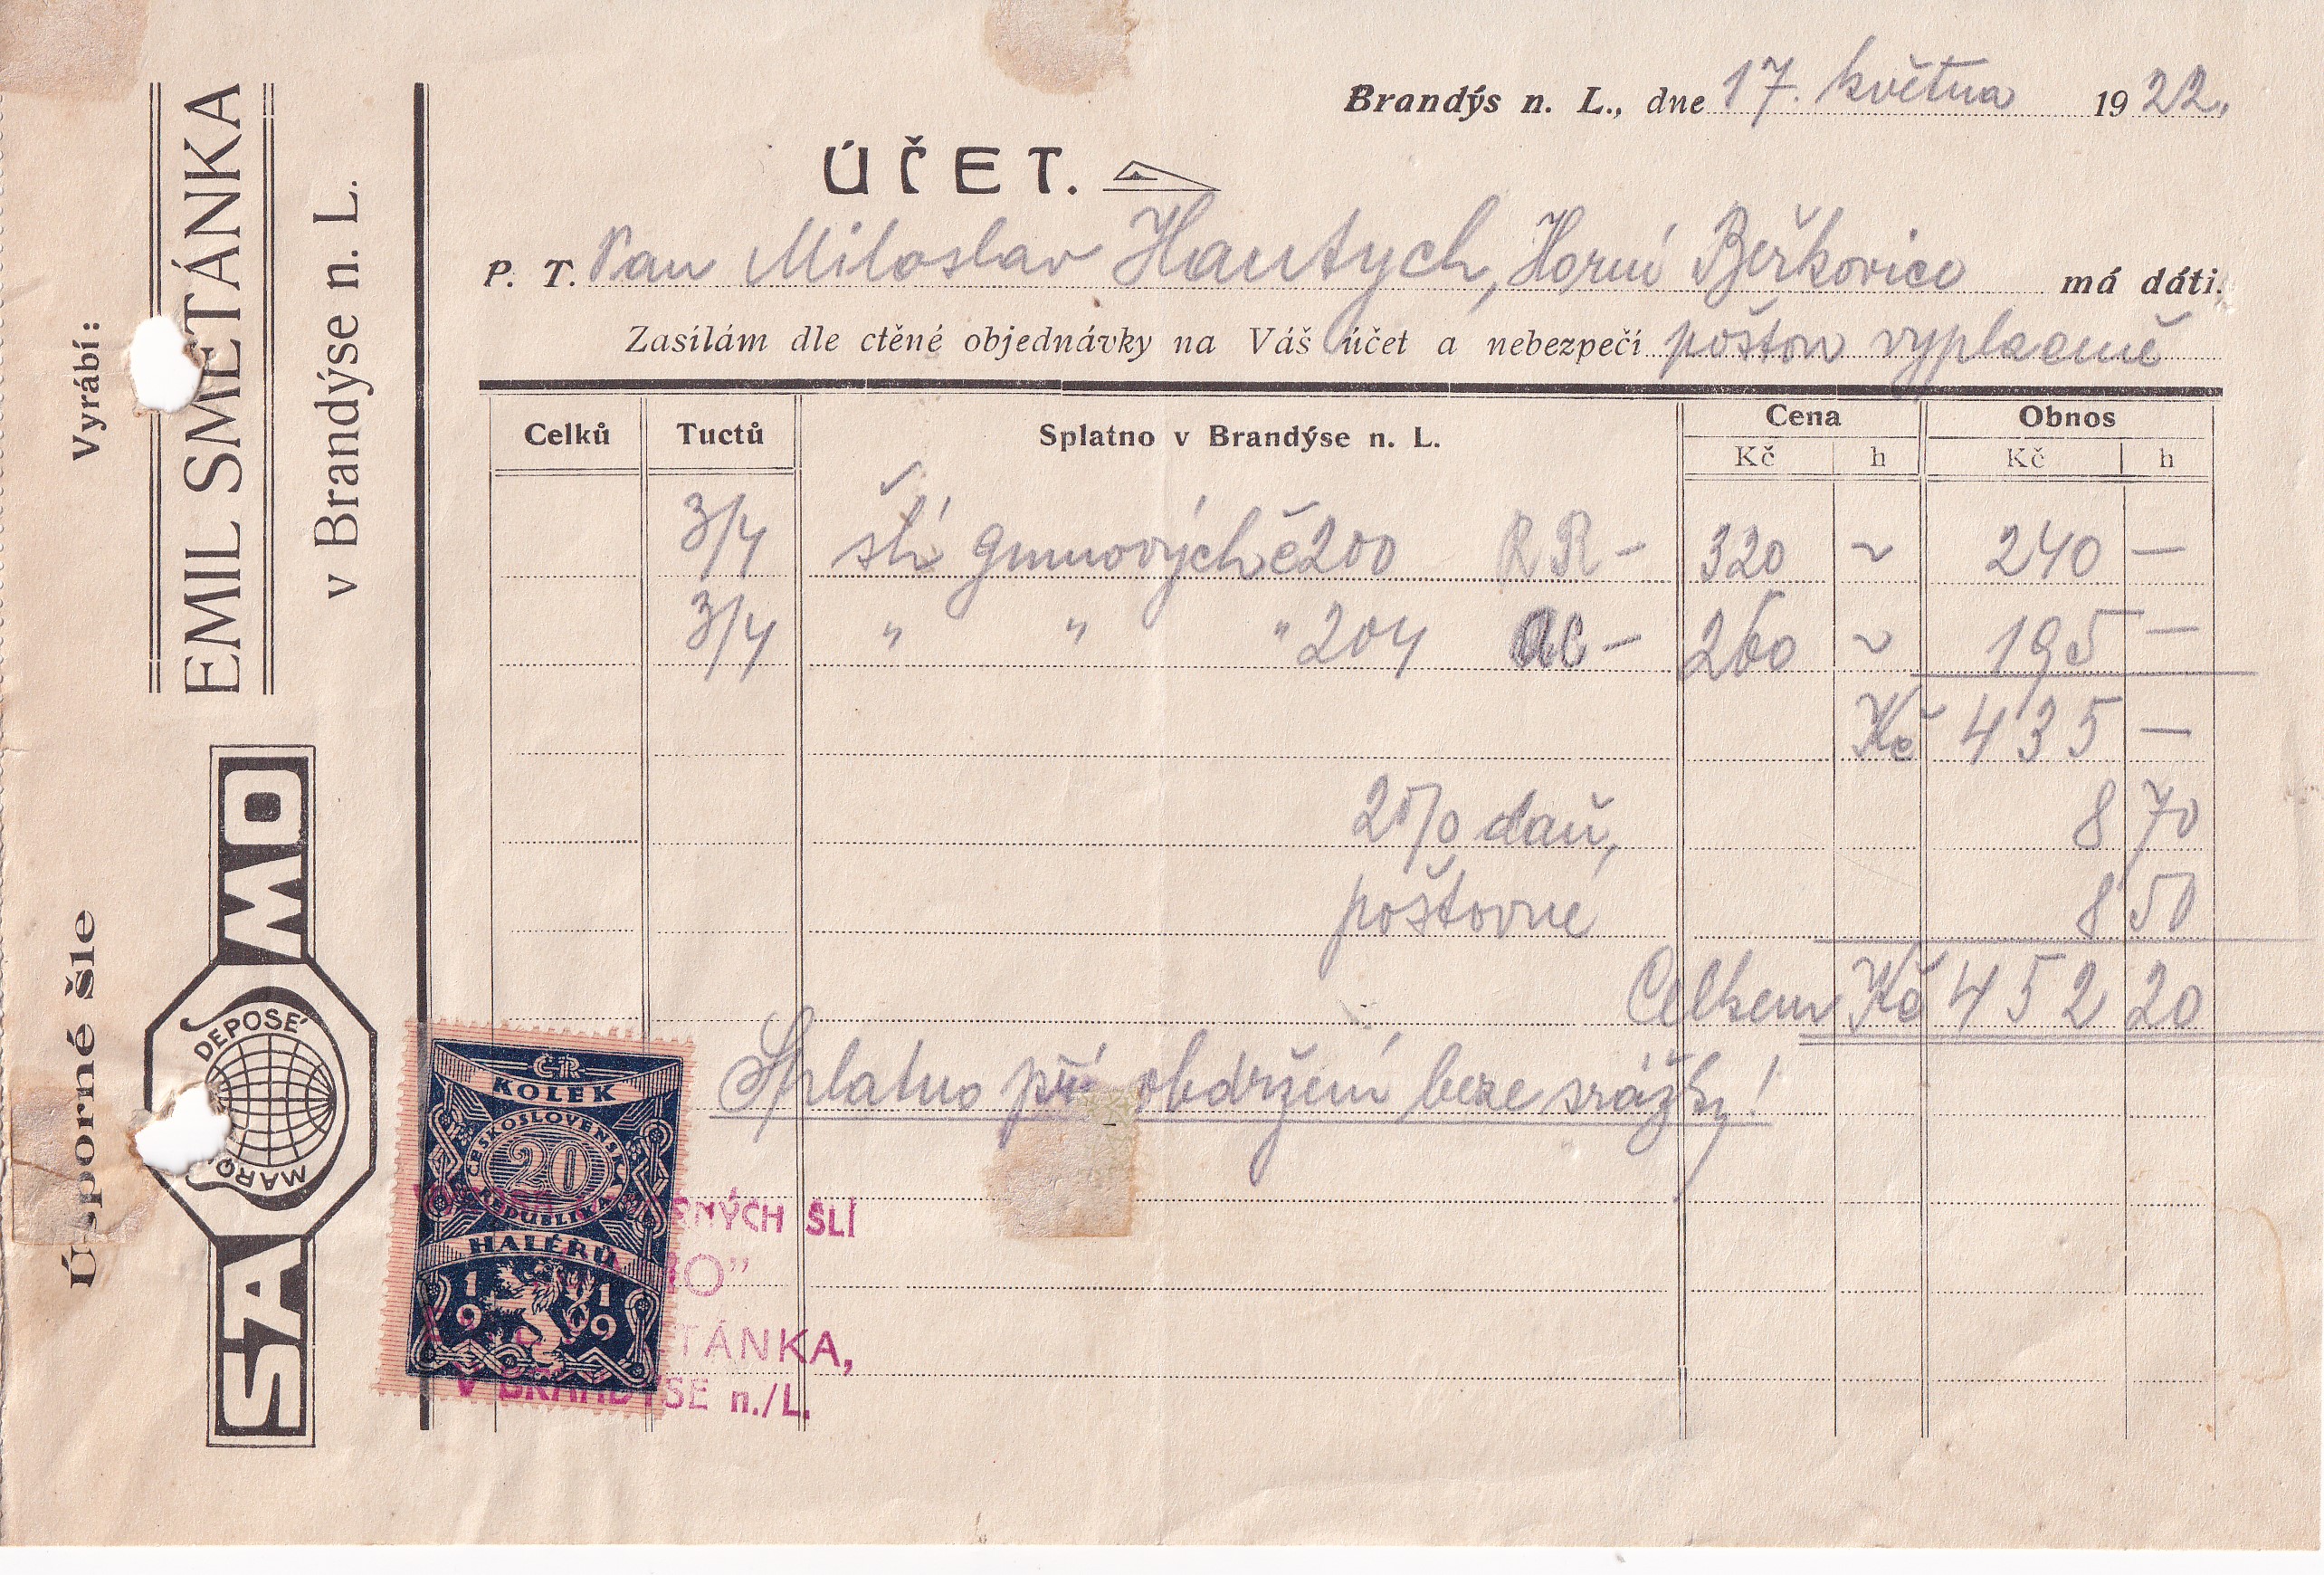 Brandýs n. L., dne 17. května 1922.
ÚČET.
P. T. Pan Miloslav Hautych, Horní Beřkovice má dáti.
Zasílám dle ctěné objednávky na Váš účet a nebezpečí poštou vyplaceně
Celků Tuctů Splatno v Brandýse n. L. Cena Obnos
Kč h Kč h
3/4 šlí gumových č 200 RR – 320 ~ 240 —
3/4 " " " 204 – 260 ~ 195 —
Kč 435 —
2% daň, 8 70
poštovné 8 50
Celkem Kč 452 20
Splatno při obdržení beze srážky!
Vyrábí:
EMIL SMETÁNKA
v Brandýse n. L.
Úsporné šle
SAMO
DEPOSÉ
ČSR
KOLEK
ČESKOSLOVENSKÁ
20
REPUBLIKA
HALÉŘŮ
1919
RNÝCH ŠLÍ
MO"
TÁNKA,
V BRANDÝSE n./L.